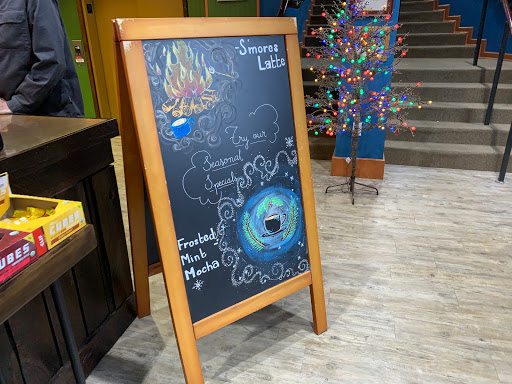 -S'mores
Latte
Try our
Seasonal
Specials
Frosted-
Mint
Mocha
CUBES
CUBES